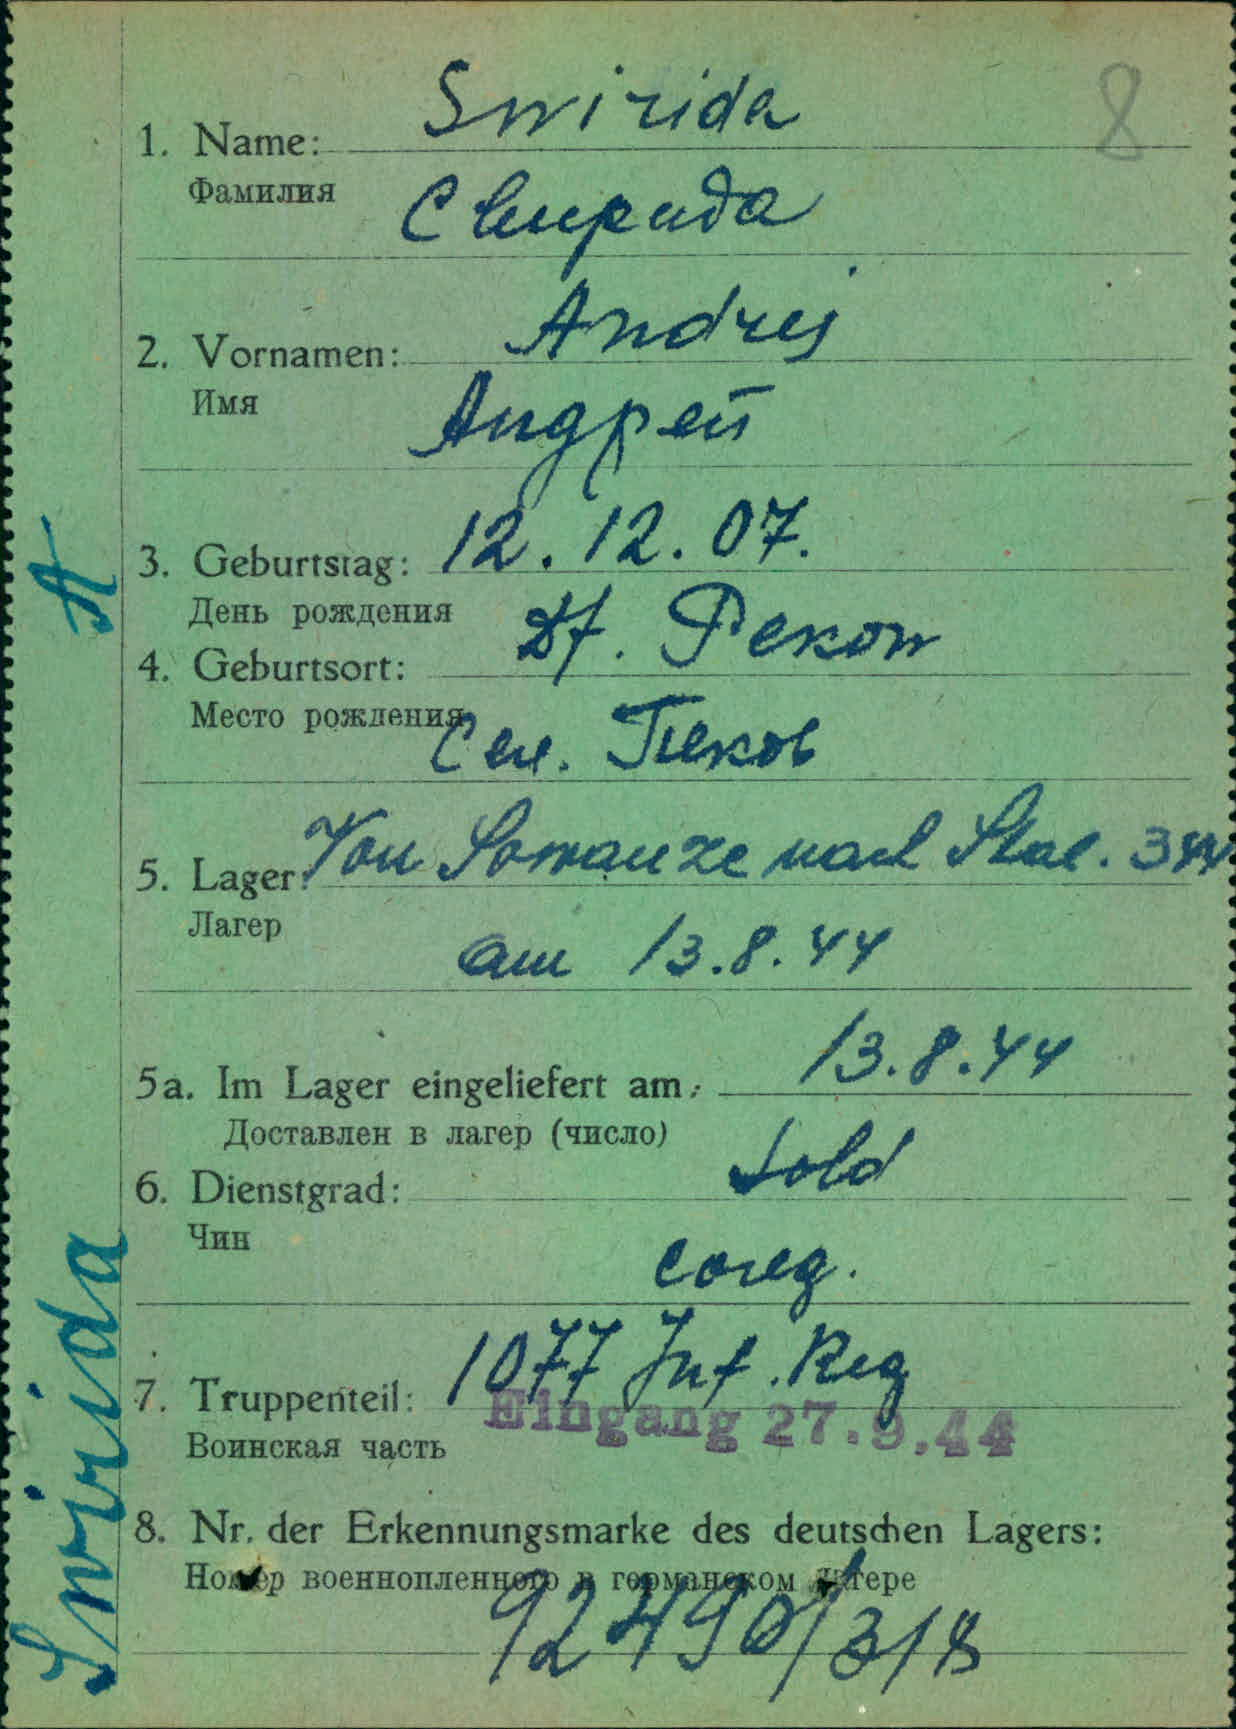 8
Swirida
1. Name:
Фамилия
Свирида
Andrej
2. Vornamen:
Имя
Андрей
3. Geburtstag: 12.12.07.
День рождения
4. Geburtsort: Df. Pekow
Место рождения
Сел. Пеков
5. Lager: Von nach Stal. 344
Лагер
am 13.8.44
5a. Im Lager eingeliefert am: 13.8.44
Доставлен в лагер (число)
6. Dienstgrad: Sold
Чин
солд.
7. Truppenteil: 1077 Inf. Reg
Eingang 27.9.44
Воинская часть
8. Nr. der Erkennungsmarke des deutschen Lagers:
Номер военнопленного в германском лагере
92490/318
A
Swirida